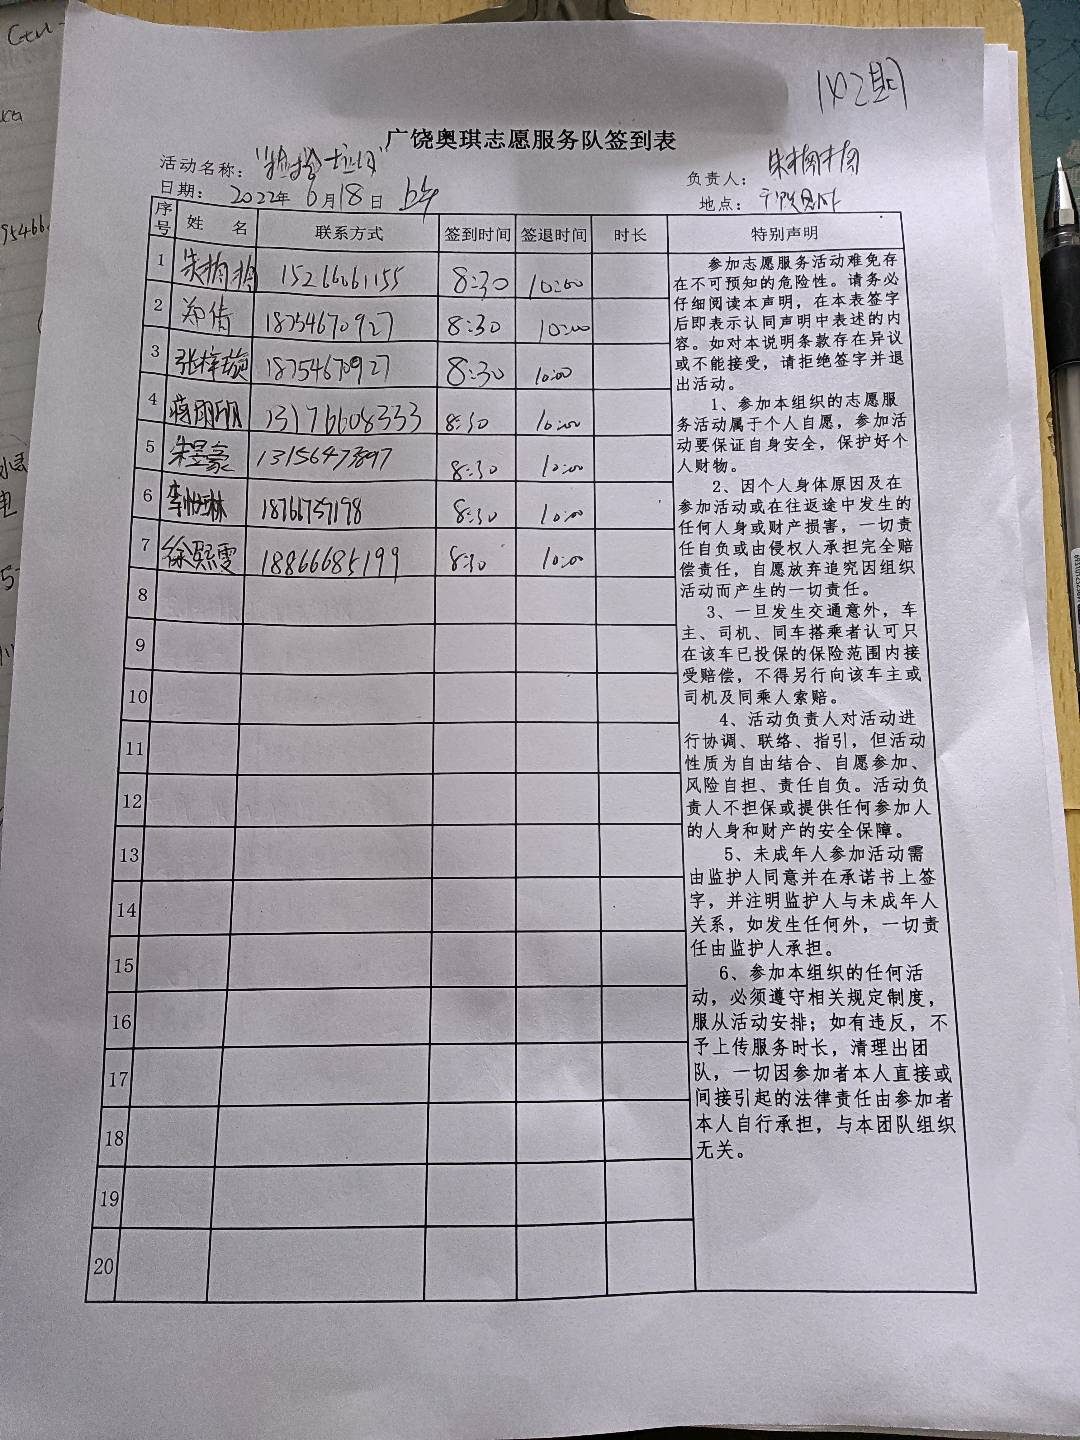 142期
广饶奥琪志愿服务队签到表
活动名称：“捡拾垃圾”
负责人：朱梅梅
日期：2022年6月18日
地点：
序号 姓 名 联系方式 签到时间 签退时间 时长 特别声明
1 朱梅梅 15266061155 8:30 10:00
2 郑倩 18754670927 8:30 10:00
3 张梓璇 18754670927 8:30 10:00
4 13176608333 8:30 10:00
5 朱昱豪 13156473897 8:30 10:00
6 李怡琳 18766737198 8:30 10:00
7 徐熙雯 18866685199 8:30 10:00
8
9
10
11
12
13
14
15
16
17
18
19
20
参加志愿服务活动难免存
在不可预知的危险性。请务必
仔细阅读本声明，在本表签字
后即表示认同声明中表述的内
容。如对本说明条款存在异议
或不能接受，请拒绝签字并退
出活动。
1、参加本组织的志愿服
务活动属于个人自愿，参加活
动要保证自身安全，保护好个
人财物。
2、因个人身体原因及在
参加活动或在往返途中发生的
任何人身或财产损害，一切责
任自负或由侵权人承担完全赔
偿责任，自愿放弃追究因组织
活动而产生的一切责任。
3、一旦发生交通意外，车
主、司机、同车搭乘者认可只
在该车已投保的保险范围内接
受赔偿，不得另行向该车主或
司机及同乘人索赔。
4、活动负责人对活动进
行协调、联络、指引，但活动
性质为自由结合、自愿参加、
风险自担、责任自负。活动负
责人不担保或提供任何参加人
的人身和财产的安全保障。
5、未成年人参加活动需
由监护人同意并在承诺书上签
字，并注明监护人与未成年人
关系，如发生任何外，一切责
任由监护人承担。
6、参加本组织的任何活
动，必须遵守相关规定制度，
服从活动安排；如有违反，不
予上传服务时长，清理出团
队，一切因参加者本人直接或
间接引起的法律责任由参加者
本人自行承担，与本团队组织
无关。